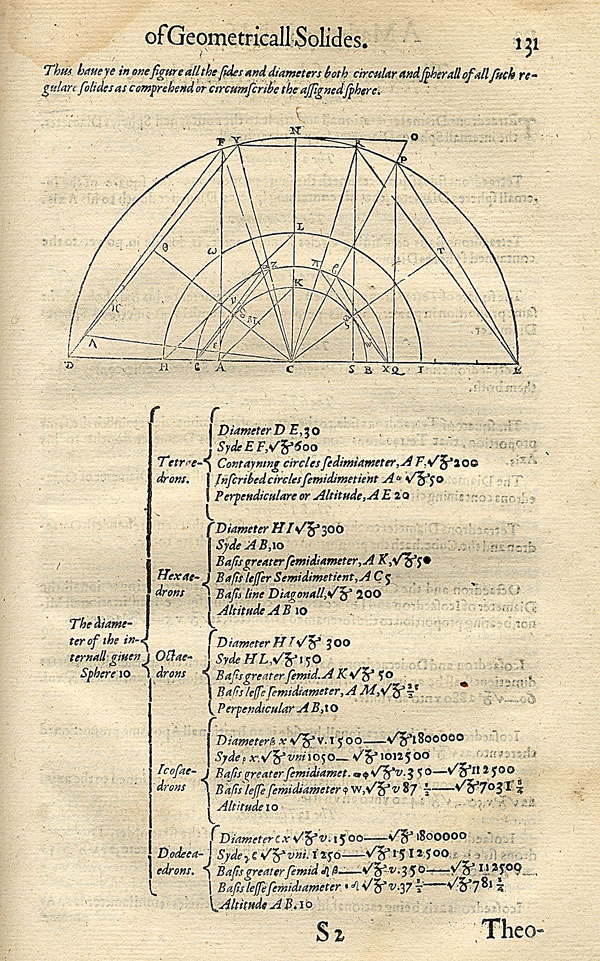 of Geometricall Solides. 131
Thus haue ye in one figure all the sides and diameters both circular and spherall of all such re-
gulare solides as comprehend or circumscribe the assigned sphere.
F V N R O
P
θ ω L T
Z π
K K
Λ
D H G A C S B X Q I E
The diame-
ter of the in-
ternall giuen
Sphere 10
Tetrae-
drons.
Diameter D E, 30
Syde E F, √ 600
Contayning circles semidiameter, A F, √ 200
Perpendiculare or Altitude, A E 20
Hexae-
drons
Diameter H I √ 300
Syde A B, 10
Basis greater semidiameter, A K, √ 50
Basis lesser Semidimetient, A C 5
Basis line Diagonall, √ 200
Altitude A B 10
Octae-
drons
Diameter H I √ 300
Syde H L, √ 150
Basis greater semid. A K √ 50
Basis lesse semidiameter, A M, √ 25/2
Perpendicular A B, 10
Icosae-
drons
Diameter x √ v. 1500—√ 1800000
Syde x. √ vni 1050—√ 1012500
Basis greater semidiamet. √ v. 350—√ 112500
Basis lesse semidiameter φ w, √ v 87 1/2—√ 7031 1/4
Altitude 10
Dodeca-
edrons.
Diameter x √ v. 1500—√ 1800000
Syde √ vni. 1250—√ 1512500
Basis greater semid √ v. 350—√ 112500
Basis lesse semidiameter √ v. 37 1/2—√ 781 1/4
Altitude A B. 10
S 2 Theo-